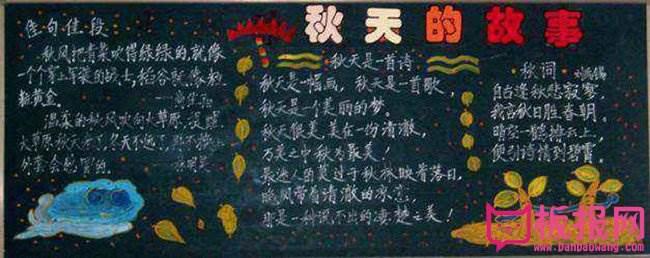 秋天的故事
佳句佳段
秋风把青菜吹得绿绿的,就像
一个个穿上军装的战士,稻谷
黄金。
温柔的秋风吹向大草原,提醒
大草原秋天来了,冬天不远了,
秋天是一首诗
秋天是一幅画,秋天是一首歌,
秋天是一个美丽的梦。
秋天很美,美在一份清澈,
万美之中秋为最美!
最迷人的莫过于秋林映着落日。
晚风带着清澈的凉意,
那是一种说不出的凄楚之美!
秋词
自古逢秋悲寂寥,
我言秋日胜春朝。
晴空一鹤排云上,
便引诗情到碧霄。
板报网
www.banbaowang.com